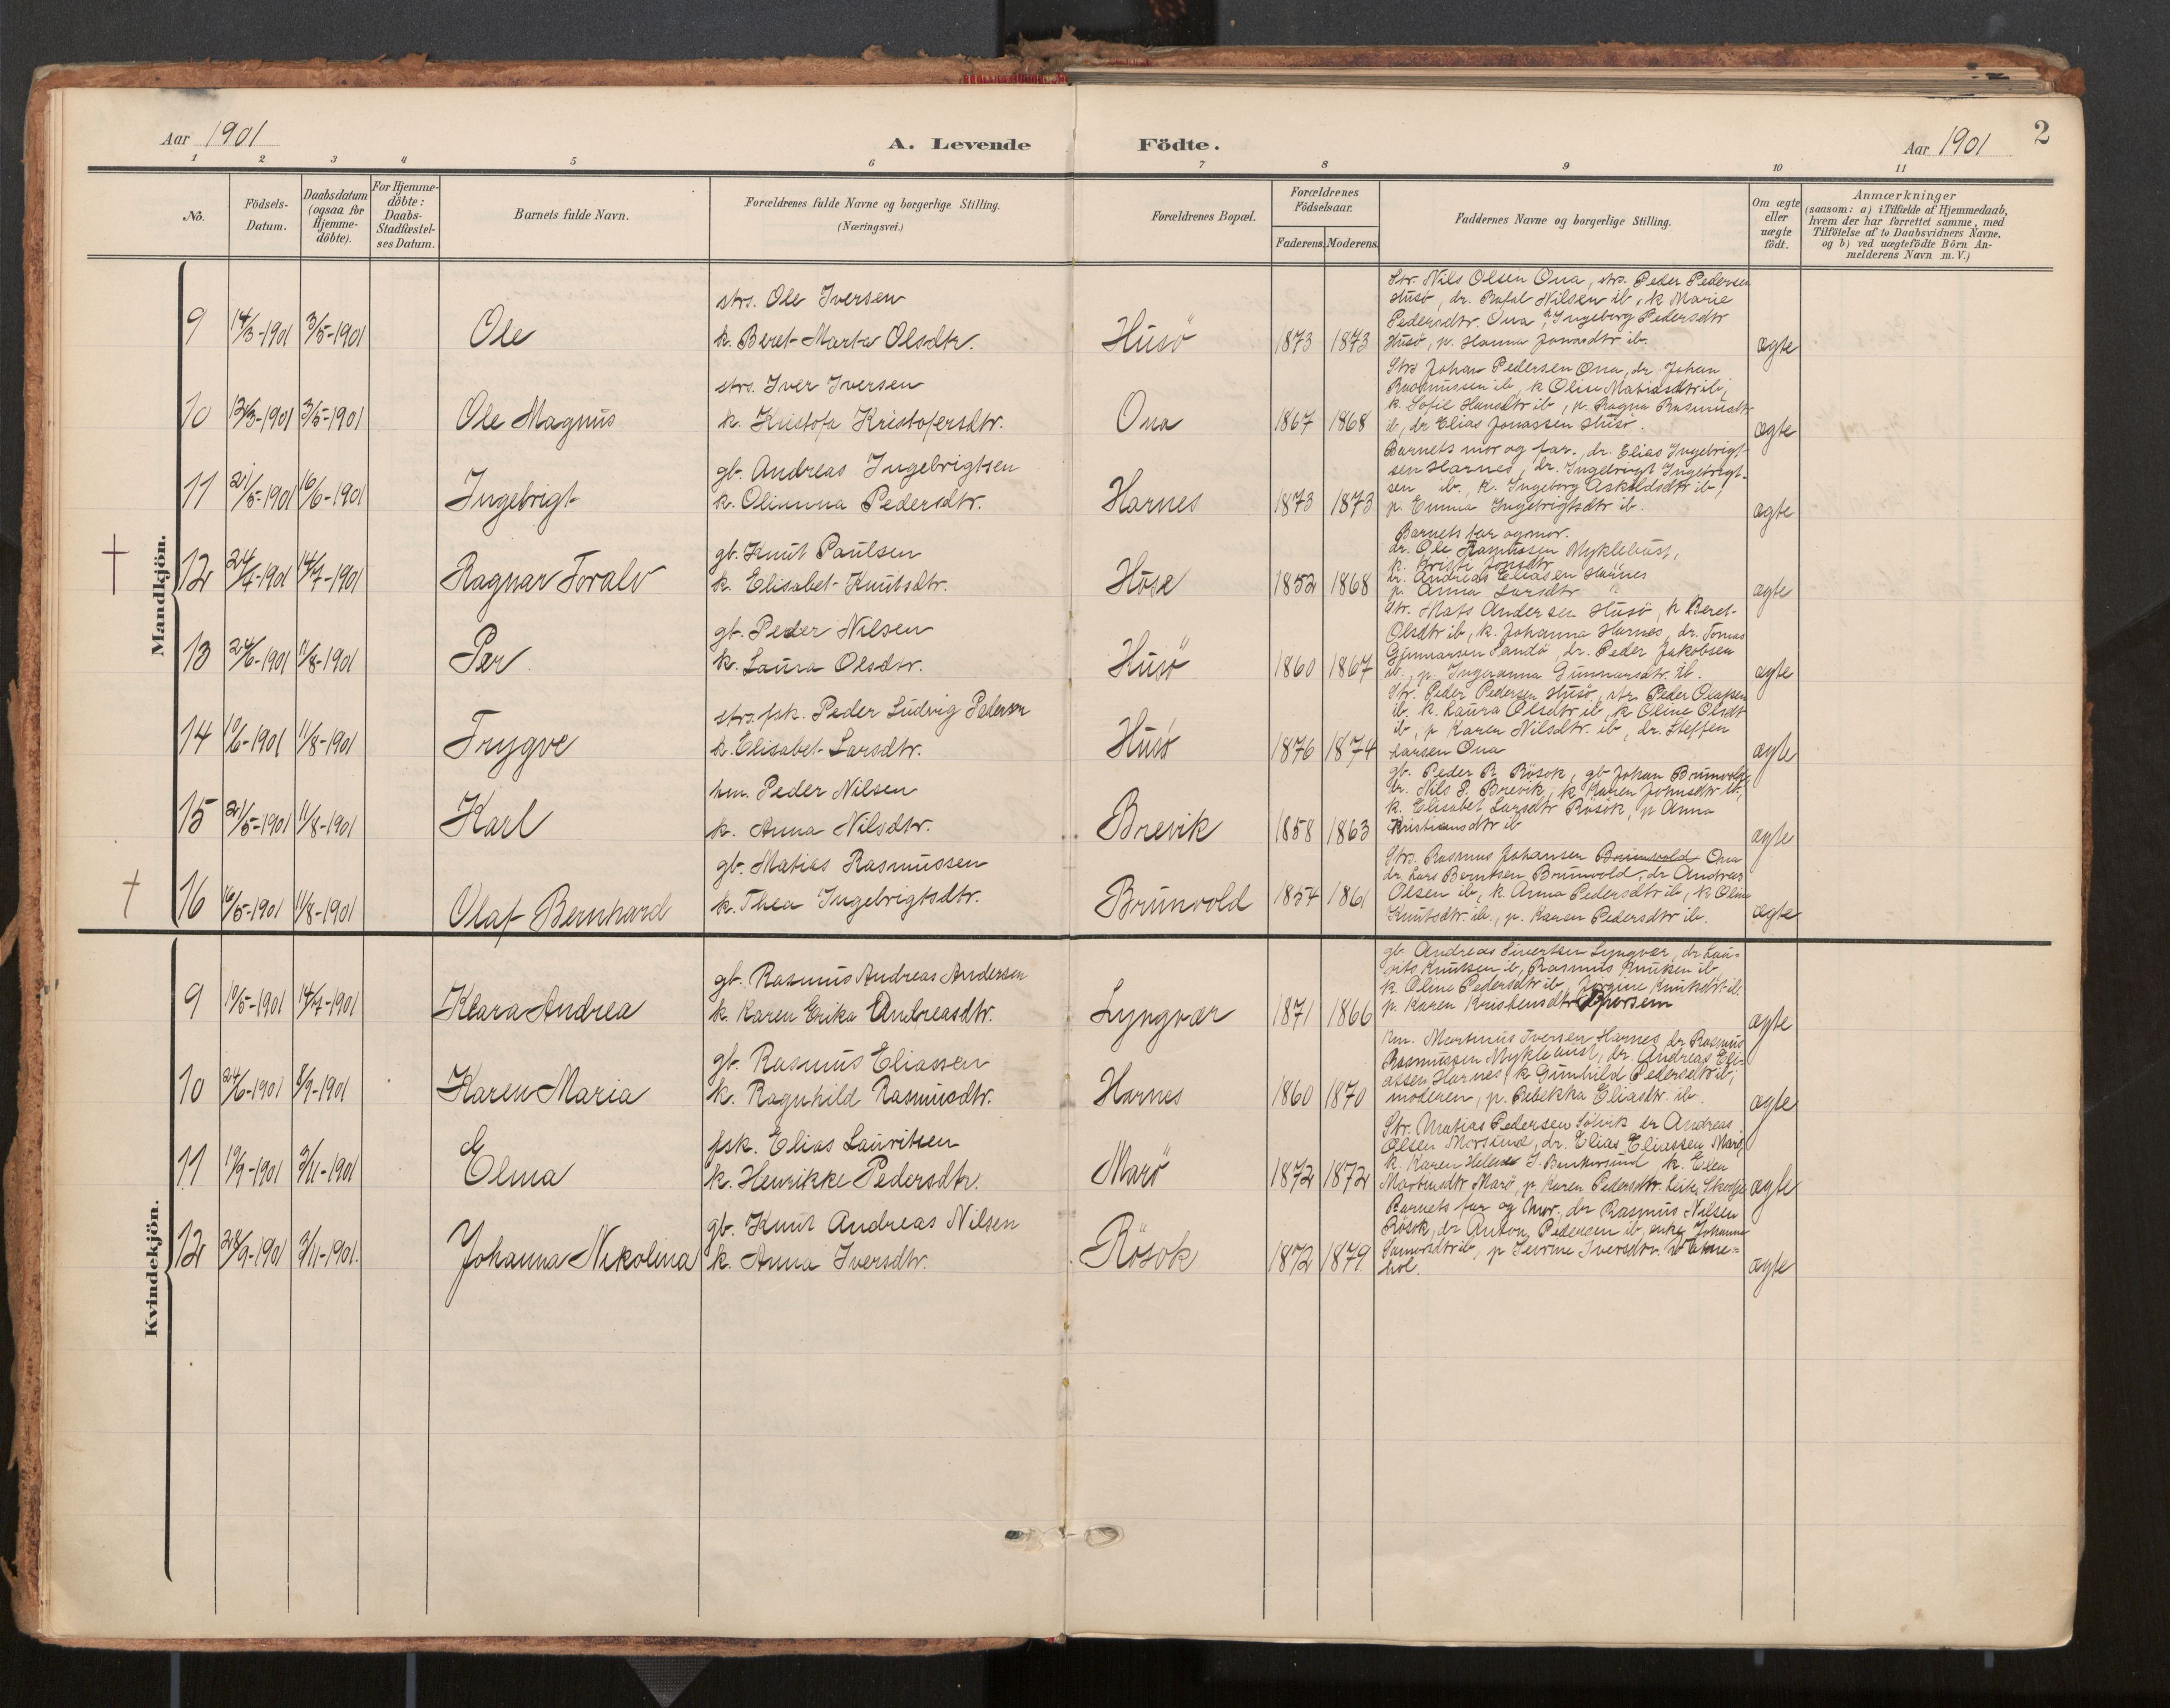 Aar 1901
A. Levende Födte.
Aar 1901
2
1 2 3 4 5 6 7 8 9 10 11
No.
Födsels-Datum.
Daabsdatum (ogsaa for Hjemme-döbte).
For Hjemme-döbte: Daabs-Stadfæstel-ses Datum.
Barnets fulde Navn.
Forældrenes fulde Navne og borgerlige Stilling.
(Næringsvei.)
Forældrenes Bopæl.
Forældrenes Födselsaar.
Faderens. Moderens.
Faddernes Navne og borgerlige Stilling.
Om ægte eller uægte födt.
Anmærkninger
(saasom: a) i Tilfælde af Hjemmedaab,
hvem der har forrettet samme, med
Tilföielse af to Daabsvidners Navne,
og b) ved uægtefödte Börn An-
melderens Navn m. V.)
Mandkjön.
9 14/3-1901 3/5-1901 Ole
strs. Ole Iversen
k. Beret-Marta Olsdtr.
Husö 1873 1873
Str. Nils Olsen Ona, strs. Peder Pedersen
Husö, dr. Rafal Nilsen ib, k Marie
Pedersdtr. Ona, Ingeborg Pedersdtr
Husö, p. Hanna Jonasdtr ib.
ægte
10 3/5-1901 Ole Magnus
strs. Iver Iversen
k. Kristofa Kristofersdtr.
Ona 1867 1868
Strs Johan Pedersen Ona, dr. Johan
Rasmussen ib, k Oline Matiasdtr ib,
k. Sofie Hansdtr ib, p. Ragna Rasmusdtr
ib, dr Elias Jonassen Husö.
ægte
11 21/5-1901 16/6-1901 Ingebrigt
gb. Andreas Ingebrigtsen
k. Olianna Pedersdtr.
Harnes 1873 1873
Barnets mor og far., dr. Elias Ingebrigt-
sen Harnes, dr. Ingebrigt Ingebrigt-
sen ib., k. Ingeborg Askildsdtr ib,
p. Emma Ingebrigtsdtr ib.
ægte
12 14/7-1901 Ragnar Toralv
gb. Knut Paulsen
k. Elisabet Knutsdtr.
Huse 1852 1868
Barnets far og mor.
dr. Ole Rasmussen Myklebust,
k. Kristi Jonsdtr
dr. Andreas Eliasen Harnes
p. Anna Larsdtr
ægte
13 24/6-1901 11/8-1901 Per
gb. Peder Nilsen
k. Laura Olsdtr.
Husö 1860 1867
Str. Mats Andersen Husö, k Beret-
Olsdtr ib, k. Johanna Harnes, dr. Tomas
Gunnarsen Sandö, dr. Peder Jakobsen
ib., p. Ingeranna Gunnarsdtr. ib.
ægte
14 10/6-1901 11/8-1901 Trygve
strs. fsk. Peder Ludvig Pedersen
k. Elisabet Larsdtr.
Husö 1876 1874
Str. Peder Pedersen Husö, str. Peder Olafsen
ib. k. Laura Olsdtr ib, k Oline Olsdtr
ib, p Karen Nilsdtr. ib, dr. Steffen
Larsen Ona
ægte
15 21/5-1901 11/8-1901 Karl
hm. Peder Nilsen
k. Anna Nilsdtr.
Brevik 1858 1863
gb. Peder R. Rösok, gb Johan Brunvold,
dr. Nils P. Brevik, k Karen Johnsdtr ib,
k. Elisabet Larsdtr Rösok, p Anna
Kristiansdtr ib
ægte
16 16/5-1901 11/8-1901 Olaf Bernhard
gb. Matias Rasmussen
k. Thea Ingebrigtsdtr.
Brunvold 1854 1861
Strs. Rasmus Johansen Brunvold Ona
dr. Lars Berntsen Brunvold, dr Andreas
Olsen ib, k. Anna Pedersdtr ib, k Oline
Knutsdtr. ib., p. Karen Pedersdtr ib.
ægte
Kvindekjön.
9 10/5-1901 14/7-1901 Klara Andrea
gb. Rasmus Andreas Andersen
k. Karen Erika Andreasdtr.
Lyngvær 1871 1866
gb. Andreas Sivertsen Lyngvær, dr Lau-
rits Knutsen ib, Rasmus Knutsen ib
k. Oline Pedersdtr ib, Jörgine Knutsdtr ib.
p. Karen Kristensdtr
ægte
10 24/6-1901 8/9-1901 Karen Maria
gb. Rasmus Eliassen
k. Ragnhild Rasmusdtr.
Harnes 1860 1870
Km. Martinus Iversen Harnes dr Rasmus
Rasmussen Myklebust, dr. Andreas Eli-
assen Harnes, k Gunhild Pedersdtr ib,
moderen, p. Rebekka Eliasdtr. ib.
ægte
11 19/9-1901 3/11-1901 Elma
fsk. Elias Lauritsen
k. Henrikke Pedersdtr.
Marö 1872 1872
Str. Matias Pedersen Sölvik dr Andreas
Olsen Morsund, dr. Elias Eliassen Marö,
k. Karen Helene J. k. Elen
Martinsdtr Marö, p. Karen Pedersdtr. Skodje
ægte
12 28/9-1901 3/11-1901. Johanna Nikolina
gb. Knut Andreas Nilsen
k. Anna Iversdtr.
Rösok 1872 1879
Barnets far og mor. dr Rasmus Nilsen
Rösok, dr Anton Pedersen ib, enke Johanna
ib, p Iversdtr.
hol.
ægte